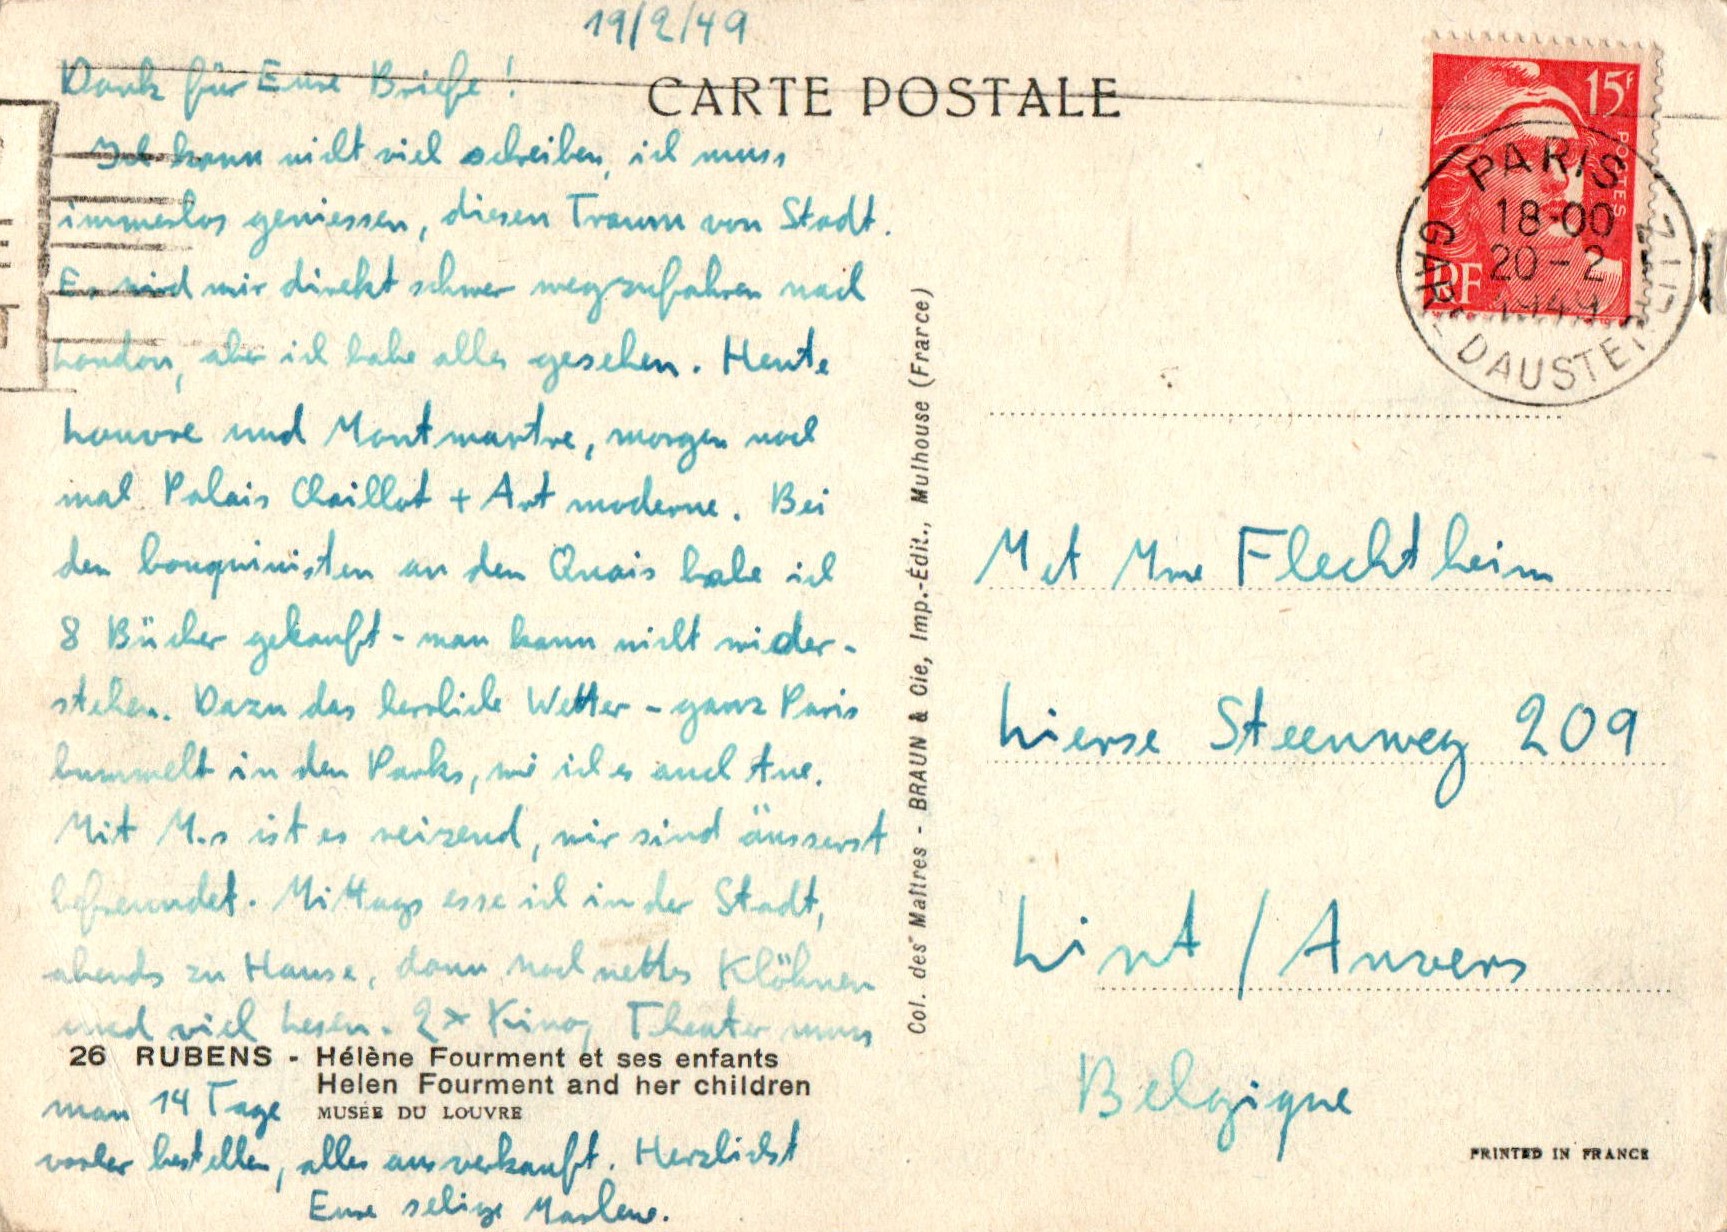 19/2/49
Dank für Eure Briefe!
Ich kann nicht viel schreiben, ich muss
geniessen, diesen Traum von Stadt.
Es wird mir direkt schwer wegzufahren nach
London, aber ich habe alles gesehen. Heute
Louvre und Montmartre, morgen noch
mal Palais Chaillot + Art moderne. Bei
den bouquinisten an den Quais habe ich
8 Bücher gekauft - man kann nicht wieder-
stehen. Dazu das herrliche Wetter - ganz Paris
bummelt in den Parks, wie ich es auch tue.
Mit M.s ist es reizend, wir sind äusserst
befreundet. Mittags esse ich in der Stadt,
abends zu Hause, dann noch nettes Klöhnen
und viel Lesen. 2x Kino, Theater muss
man 14 Tage
vorher bestellen, alles ausverkauft. Herzlichst
Eure selige Marlene.
26 RUBENS - Hélène Fourment et ses enfants
Helen Fourment and her children
MUSÉE DU LOUVRE
CARTE POSTALE
Col. des Maîtres - BRAUN & Cie, Imp.-Édit., Mulhouse (France)
15F
POSTES
RF
PARIS
18-00
20-2
1949
GARE D'AUSTERLITZ
M et Mme Flechtheim
Lierse Steenweg 209
Lint / Anvers
Belgique
PRINTED IN FRANCE